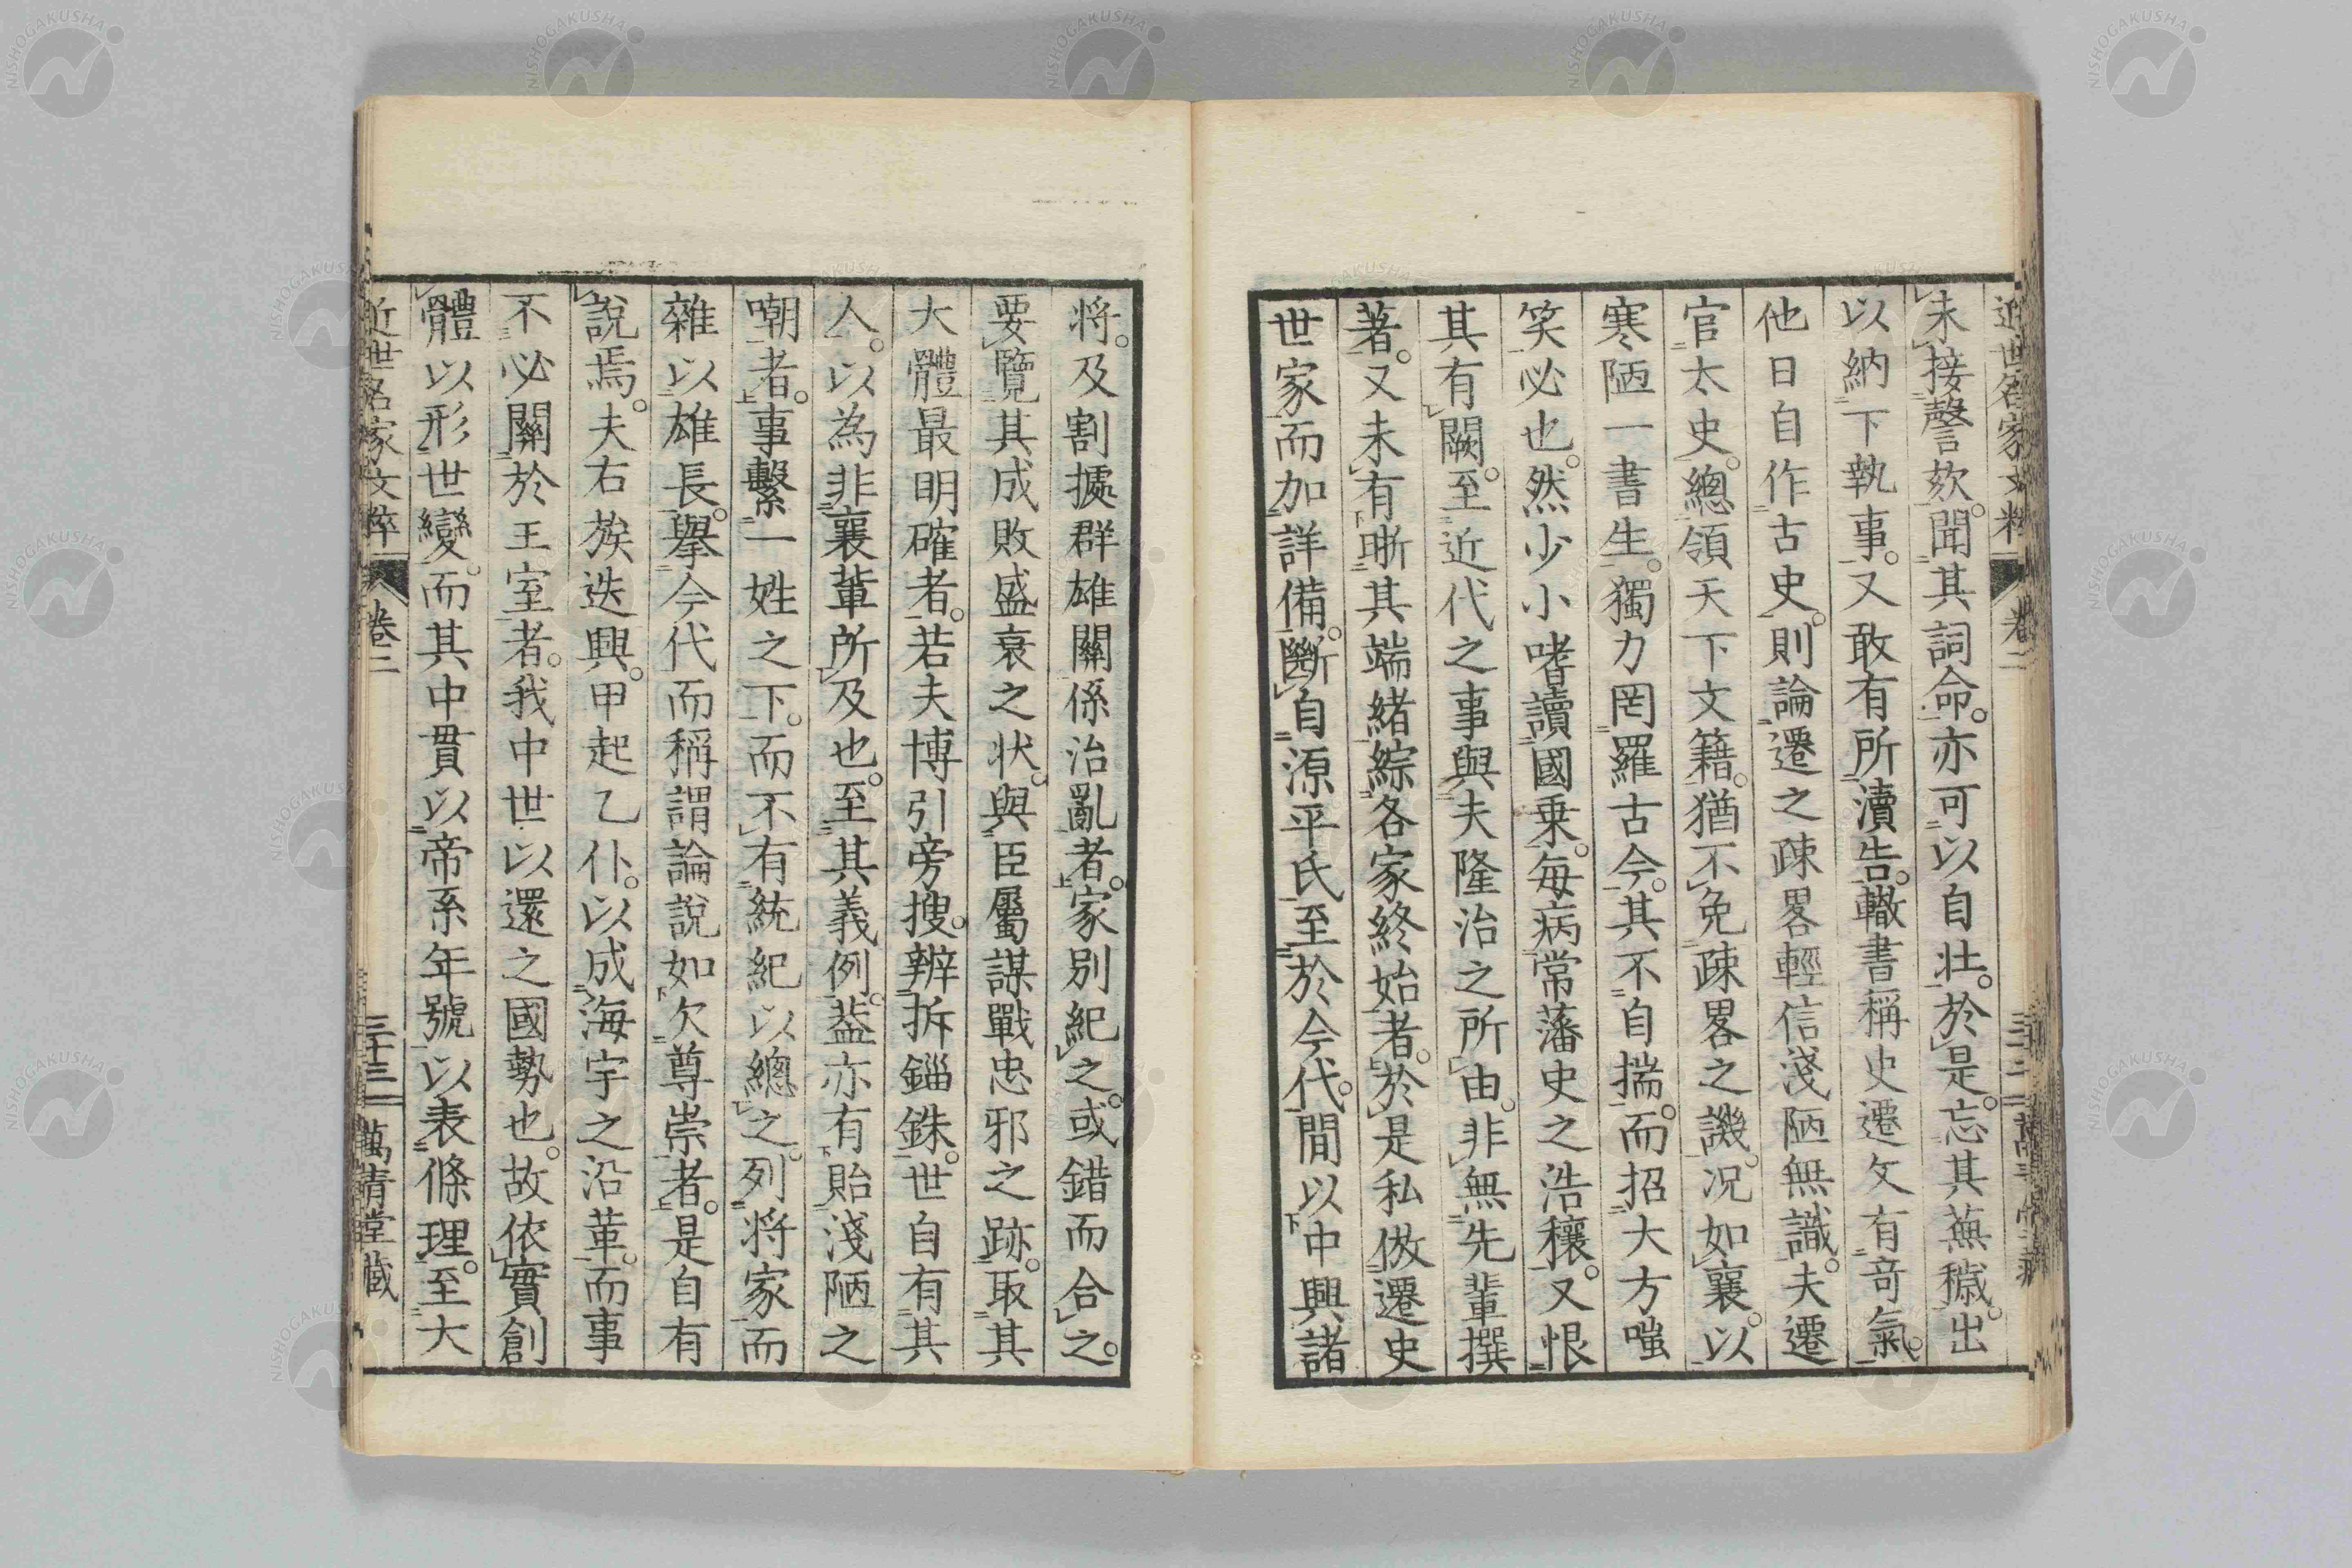 近世名家文粹 卷二
未接謦欬。聞其詞命。亦可以自壯。於是。忘其蕪穢。出
以納下執事。又敢有所瀆告。轍書稱史遷文有奇氣。
他日自作古史。則論遷之疎畧輕信淺陋無識。夫遷
官太史。總領天下文籍。猶不免疎畧之譏。况如襄。以
寒陋一書生。獨力罔羅古今。其不自揣。而招大方嗤
笑必也。然少小嗜讀國乗。每病常藩史之浩穰。又恨
其有闕。至近代之事與夫隆治之所由。非無先輩撰
著。又未有晣其端緒綜各家終始者。於是私倣遷史
世家而加詳備。斷自源平氏至於今代。間以中興諸
將。及割據群雄關係治亂者。家別紀之。或錯而合之。
要覽其成敗盛衰之状。與臣屬謀戰忠邪之跡。取其
大體最明確者。若夫博引旁搜。辨拆錙銖。世自有其
人。以為非襄輩所及也。至其義例。葢亦有貽淺陋之
嘲者。事繫一姓之下。而不有統紀以總之。列將家而
雜以雄長。擧今代而稱謂論說如欠尊崇者。是自有
說焉。夫右族迭興。甲起乙仆。以成海宇之沿革。而事
不必關於王室者。我中世以還之國勢也。故依實創
體以形世變。而其中貫以帝系年號以表條理。至大
近世名家文粹 卷二 三十三 萬青堂藏